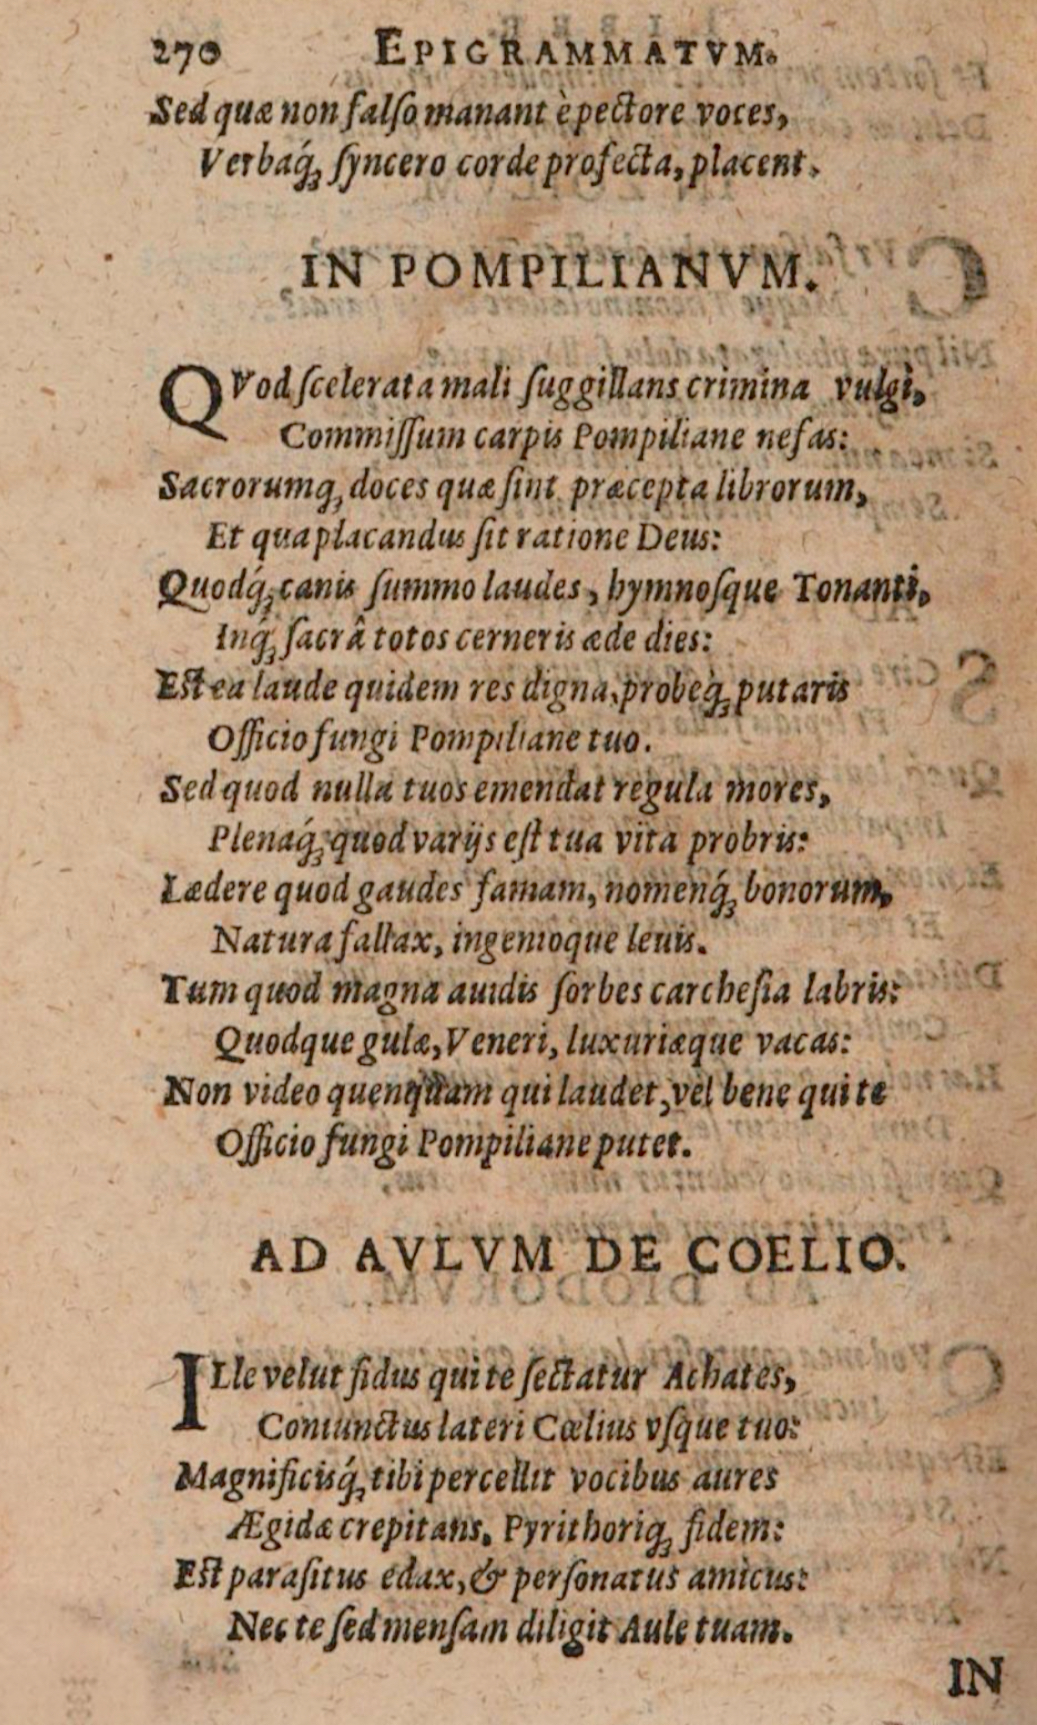 270 EPIGRAMMATVM.
Sed quæ non falſo manant è pectore voces,
Verbaq́ꝫ ſyncero corde profecta, placent.
IN POMPILIANVM.
QVod ſcelerata mali ſuggillans crimina vulgi,
Commiſſum carpis Pompiliane nefas:
Sacrorumqꝫ doces quæ ſint præcepta librorum,
Et qua placandus ſit ratione Deus:
Quodq́ꝫ canis ſummo laudes, hymnoſque Tonanti,
Inq́ꝫ ſacrâ totos cerneris æde dies:
Est ea laude quidem res digna, probeq̀ꝫ putaris
Officio fungi Pompiliane tuo.
Sed quod nulla tuos emendat regula mores,
Plenaq́ꝫ quod varijs eſt tua vita probris:
Lædere quod gaudes famam, nomenq́ꝫ bonorum,
Natura fallax, ingenioque leuis.
Tum quod magna auidis ſorbes carcheſia labris:
Quodque gulæ, Veneri, luxuriæque vacas:
Non video quenquam qui laudet, vel bene qui te
Officio fungi Pompiliane putet.
AD AVLVM DE COELIO.
ILle velut fidus qui te ſectatur Achates,
Coniunctus lateri Cœlius vſque tuo:
Magnificisq́ꝫ tibi percellit vocibus aures
Ægidæ crepitans, Pyrithoriqꝫ fidem:
Est paraſitus edax, & perſonatus amicus:
Nec te ſed menſam diligit Aule tuam.
IN